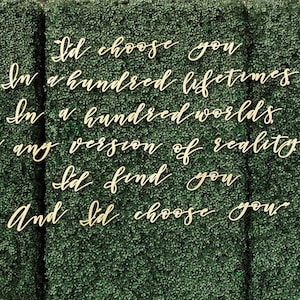 I'd choose you
In a hundred lifetimes
In a hundred worlds
any version of reality
I'd find you
And I'd choose you